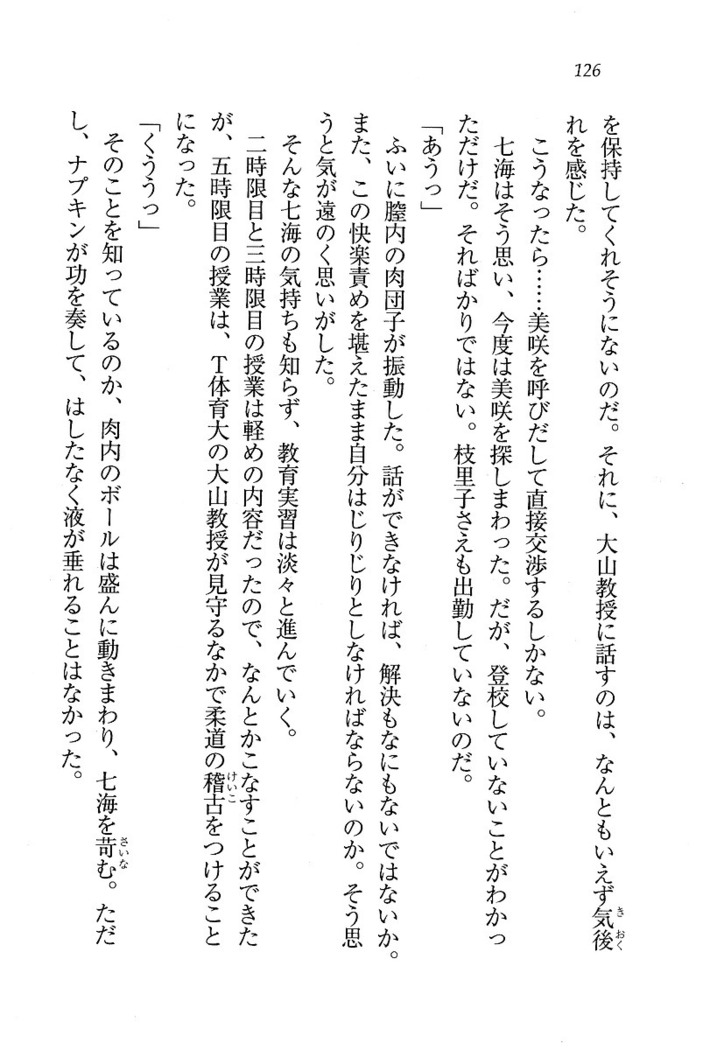 126
を保持してくれそうにないのだ。それに、大山教授に話すのは、なんともいえず気後
れを感じた。
こうなったら……美咲を呼びだして直接交渉するしかない。
七海はそう思い、今度は美咲を探しまわった。だが、登校していないことがわかっ
ただけだ。そればかりではない。枝里子さえも出勤していないのだ。
「あうっ」
ふいに膣内の肉団子が振動した。話ができなければ、解決もなにもないではないか。
また、この快楽責めを堪えたまま自分はじりじりとしなければならないのか。そう思
うと気が遠のく思いがした。
そんな七海の気持ちも知らず、教育実習は淡々と進んでいく。
二時限目と三時限目の授業は軽めの内容だったので、なんとかこなすことができた
が、五時限目の授業は、T体育大の大山教授が見守るなかで柔道の稽古をつけること
になった。
「くううっ」
そのことを知っているのか、肉内のボールは盛んに動きまわり、七海を苛む。ただ
し、ナプキンが功を奏して、はしたなく液が垂れることはなかった。